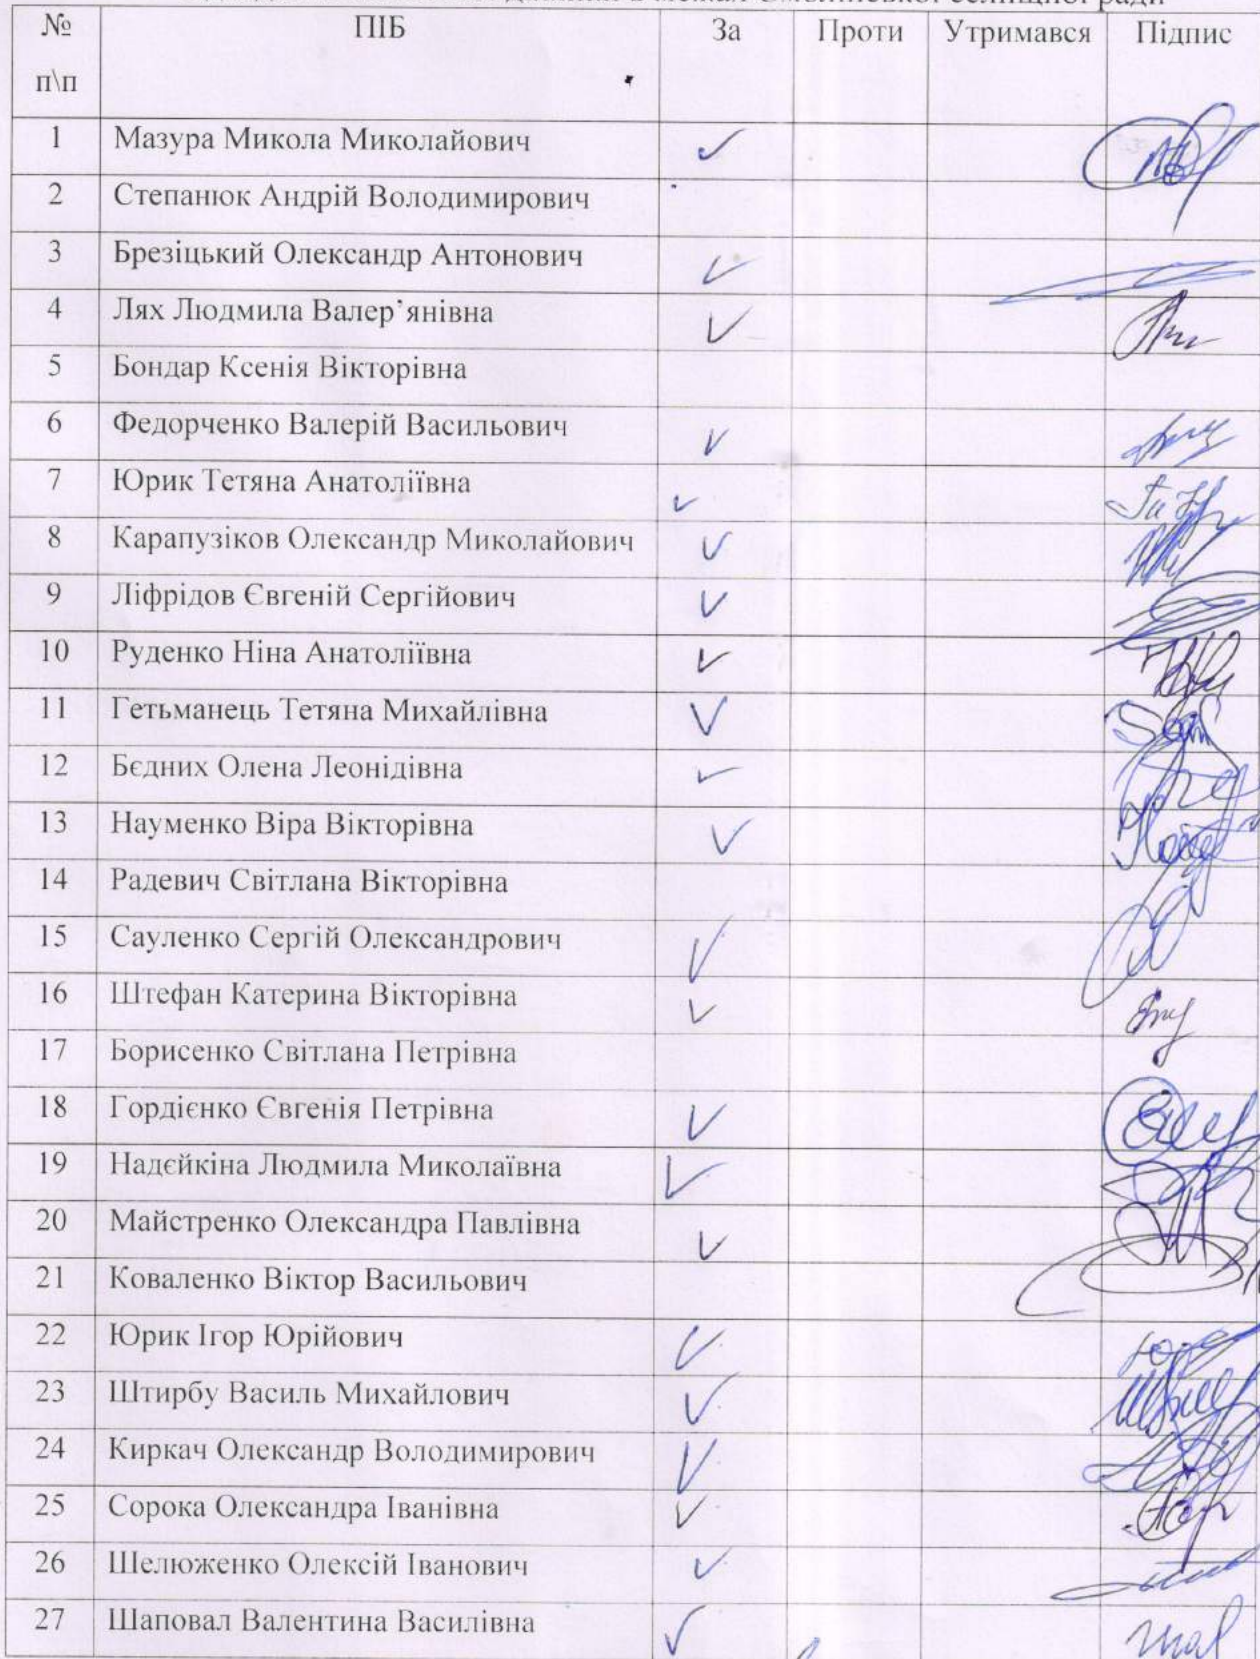 в межах Смолінської селищної ради
№ п\п ПІБ За Проти Утримався Підпис
1 Мазура Микола Миколайович ✓
2 Степанюк Андрій Володимирович
3 Брезіцький Олександр Антонович ✓
4 Лях Людмила Валер’янівна ✓
5 Бондар Ксенія Вікторівна
6 Федорченко Валерій Васильович ✓
7 Юрик Тетяна Анатоліївна ✓
8 Карапузіков Олександр Миколайович ✓
9 Ліфрідов Євгеній Сергійович ✓
10 Руденко Ніна Анатоліївна ✓
11 Гетьманець Тетяна Михайлівна ✓
12 Бєдних Олена Леонідівна ✓
13 Науменко Віра Вікторівна ✓
14 Радевич Світлана Вікторівна
15 Сауленко Сергій Олександрович ✓
16 Штефан Катерина Вікторівна ✓
17 Борисенко Світлана Петрівна
18 Гордієнко Євгенія Петрівна ✓
19 Надєйкіна Людмила Миколаївна ✓
20 Майстренко Олександра Павлівна ✓
21 Коваленко Віктор Васильович
22 Юрик Ігор Юрійович ✓
23 Штирбу Василь Михайлович ✓
24 Киркач Олександр Володимирович ✓
25 Сорока Олександра Іванівна ✓
26 Шелюженко Олексій Іванович ✓
27 Шаповал Валентина Василівна ✓